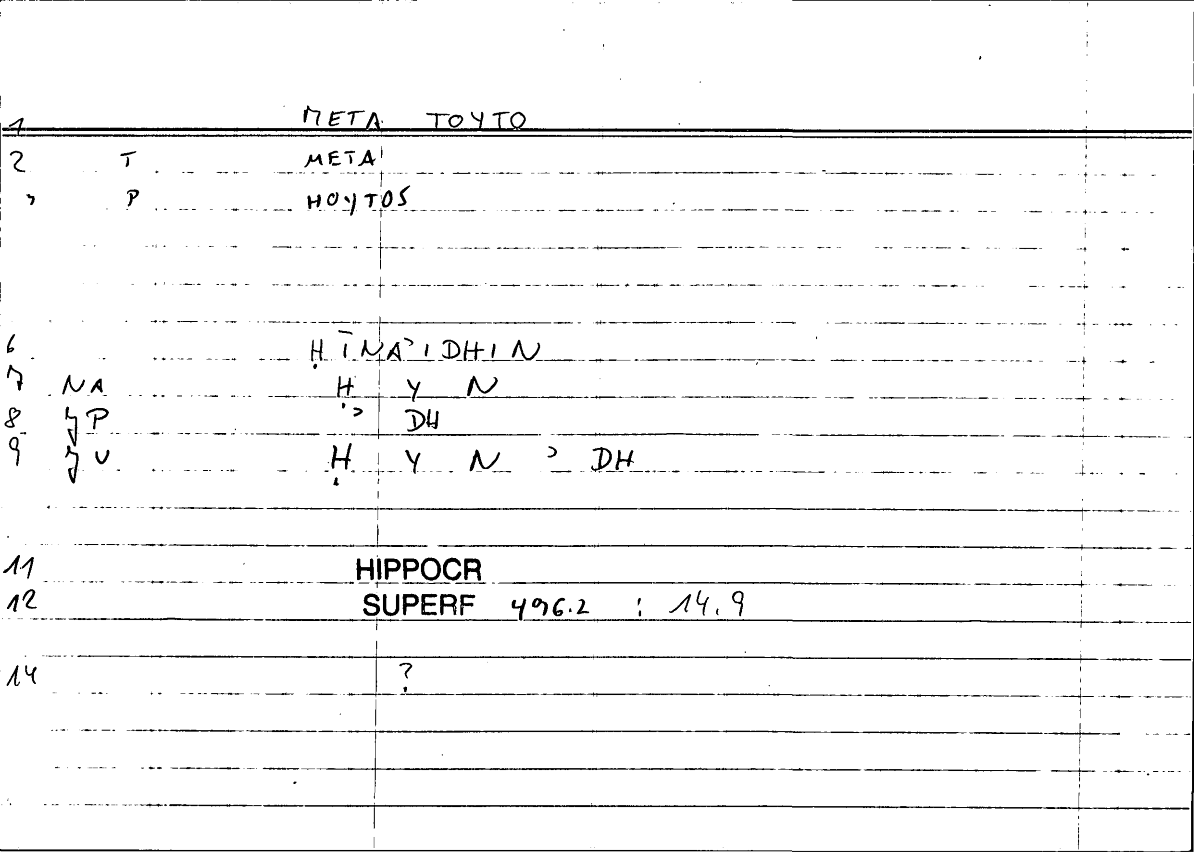 1 META TOYTO
2 T META
" P HOYTOS
6 Ḥ ĪNA'IDHIN
7 NA H Y N
8 P DH
9 U Ḥ Y N ' DH
11 HIPPOCR
12 SUPERF 496.2 : 14.9
14 ?